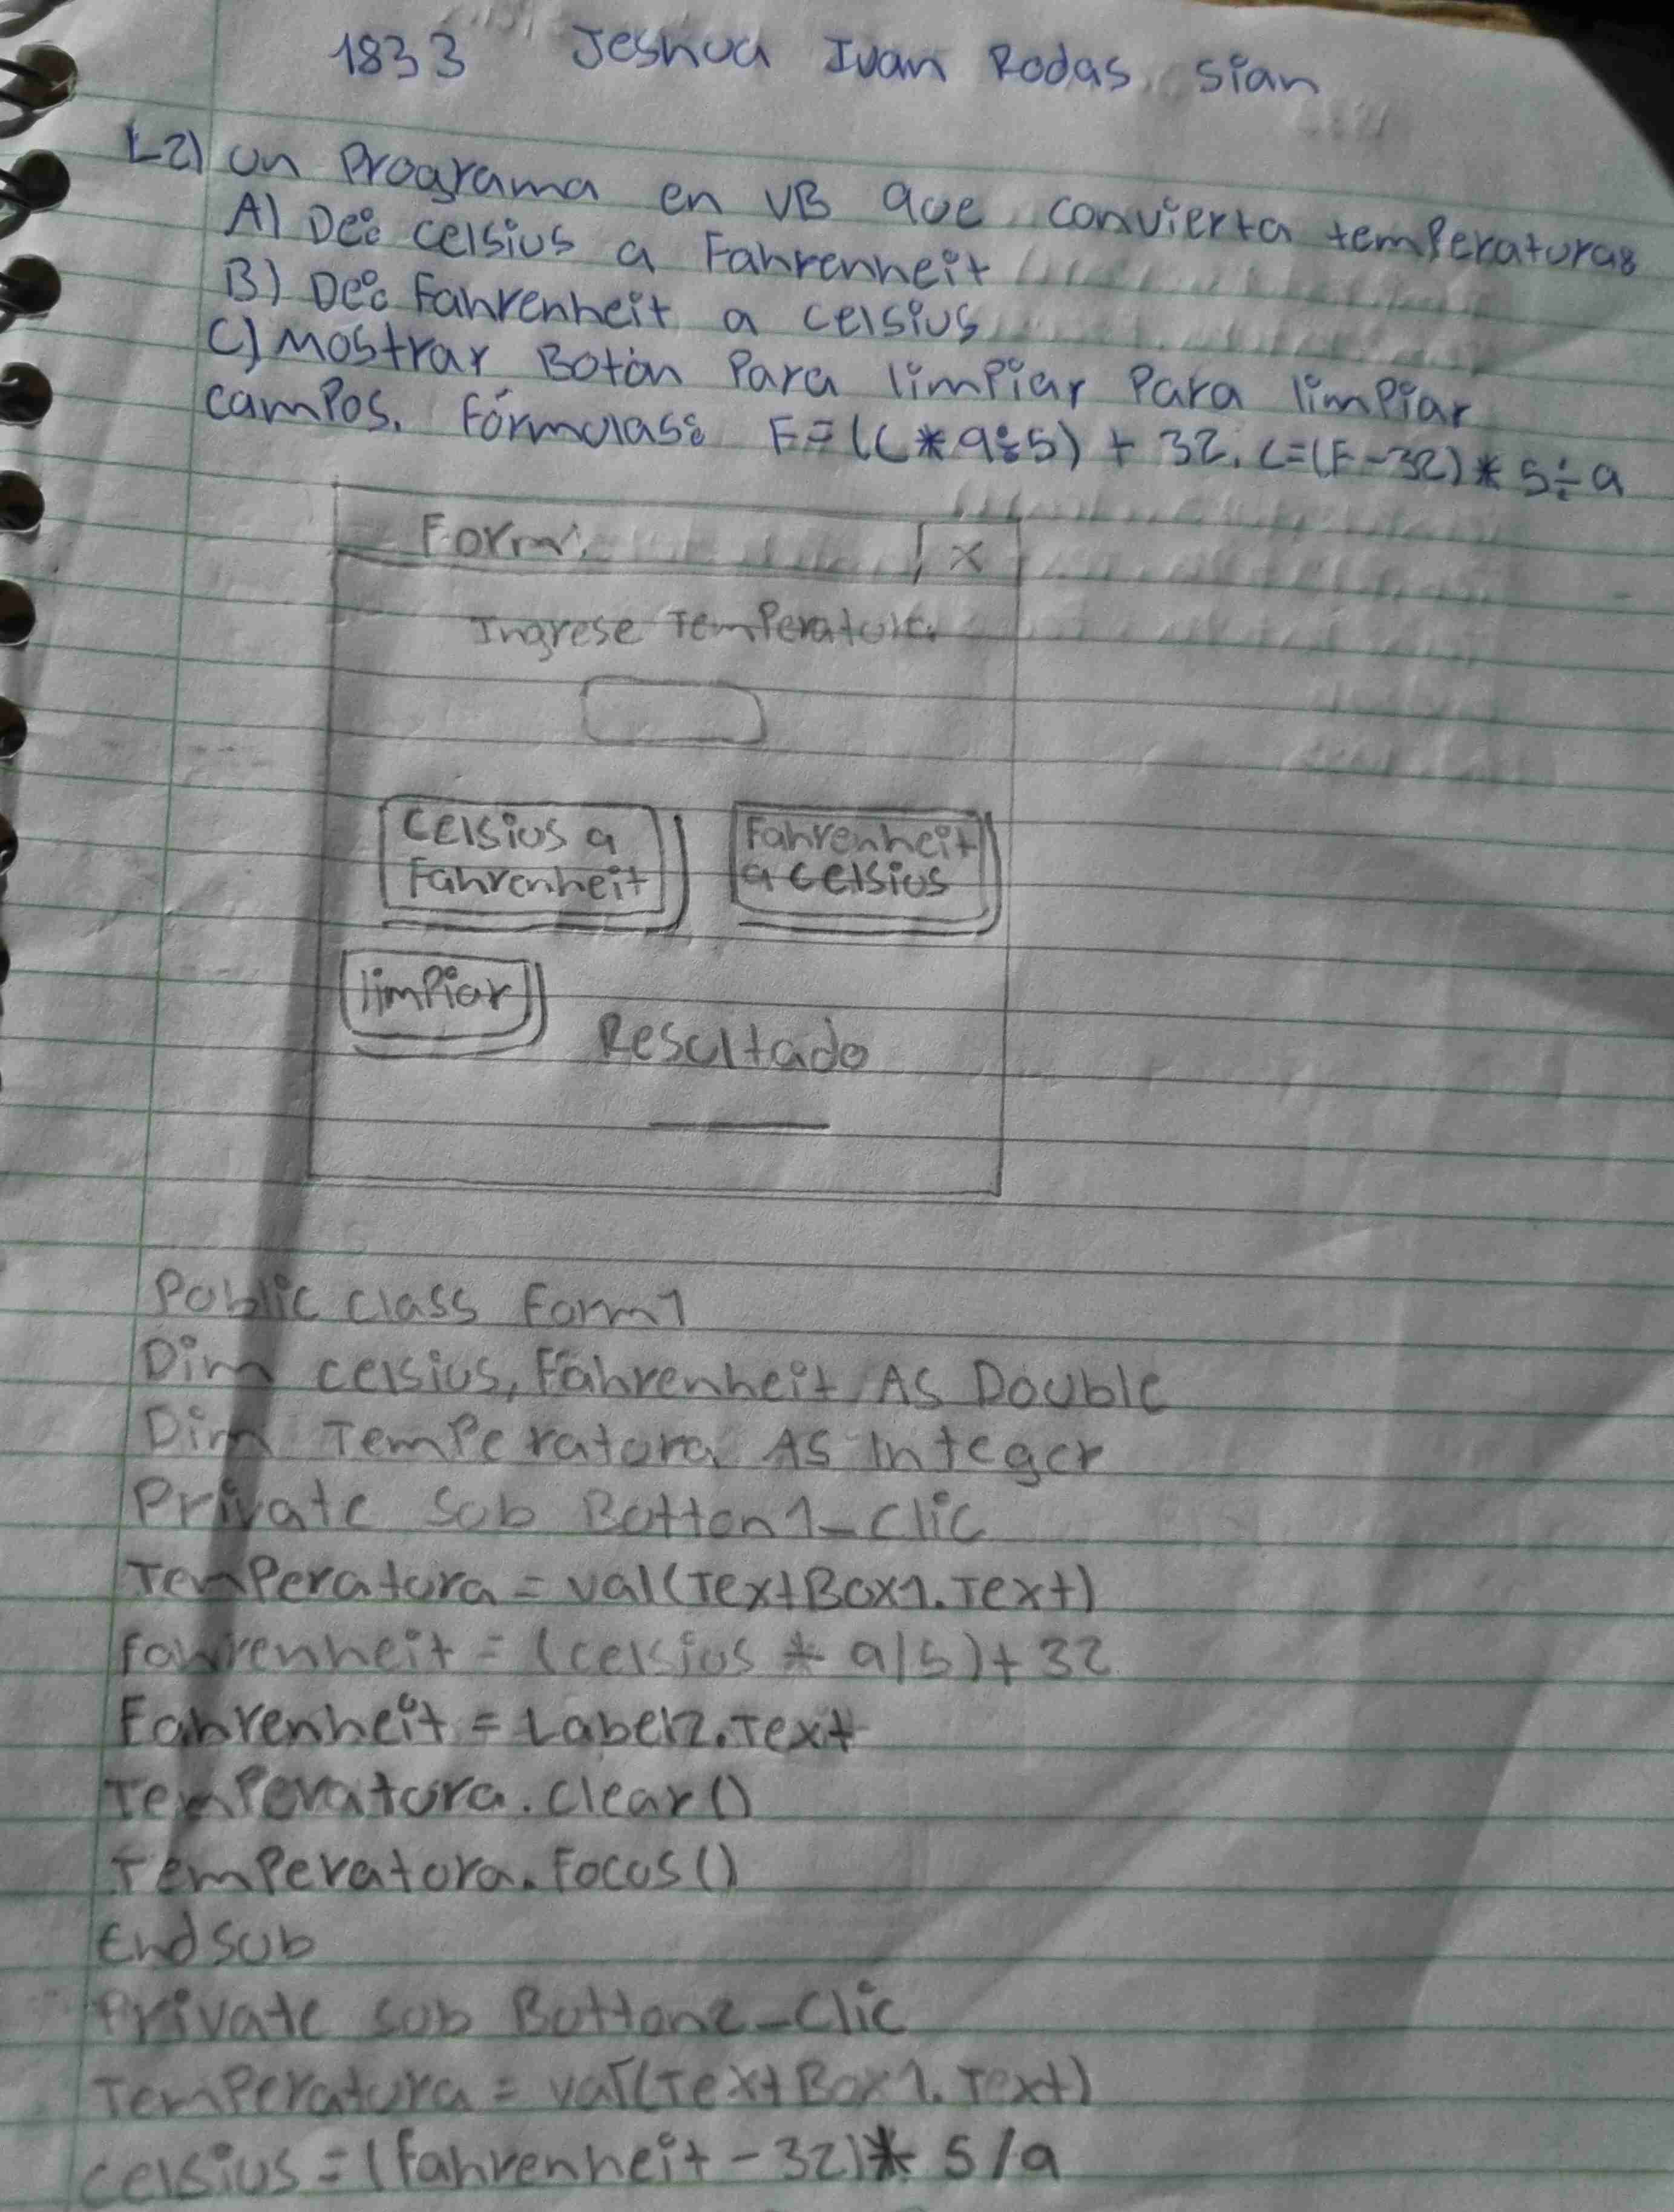 1833 Jeshua Ivan Rodas Sian
L2) un Programa en VB que convierta temperaturas
A) De: celsius a Fahrenheit
B) De: Fahrenheit a celsius
C) Mostrar Botón Para limpiar Para limpiar
campos. Fórmulas: F=(C*9÷5) + 32. C=(F-32)*5÷9
Form1 X
Ingrese Temperatura
Celsius a Fahrenheit
Fahrenheit a celsius
limpiar
Resultado
Public class Form1
Dim celsius, Fahrenheit As Double
Dim Temperatura AS Integer
Private Sub Botton1_clic
Temperatura = val(TextBox1.Text)
Fahrenheit = (celsius * 9/5)+32
Fahrenheit = Label2.Text
Temperatura.clear()
Temperatura.Focus()
End sub
Private sub Botton2_Clic
Temperatura = val(TextBox1.Text)
celsius = (fahrenheit - 32)* 5/9